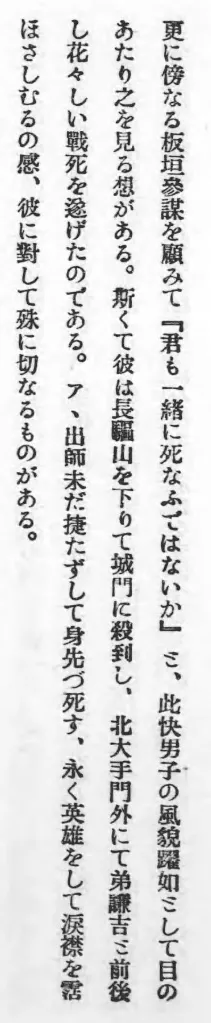 更に傍なる板垣參謀を顧みて『君も一緒に死なふではないか』と、此快男子の風貌躍如として目の
あたり之を見る想がある。斯くて彼は長驅山を下りて城門に殺到し、北大手門外にて弟謙吉と前後
し花々しい戰死を遂げたのである。ア、出師未だ捷たずして身先づ死す、永く英雄をして淚襟を霑
ほさしむるの感、彼に對して殊に切なるものがある。